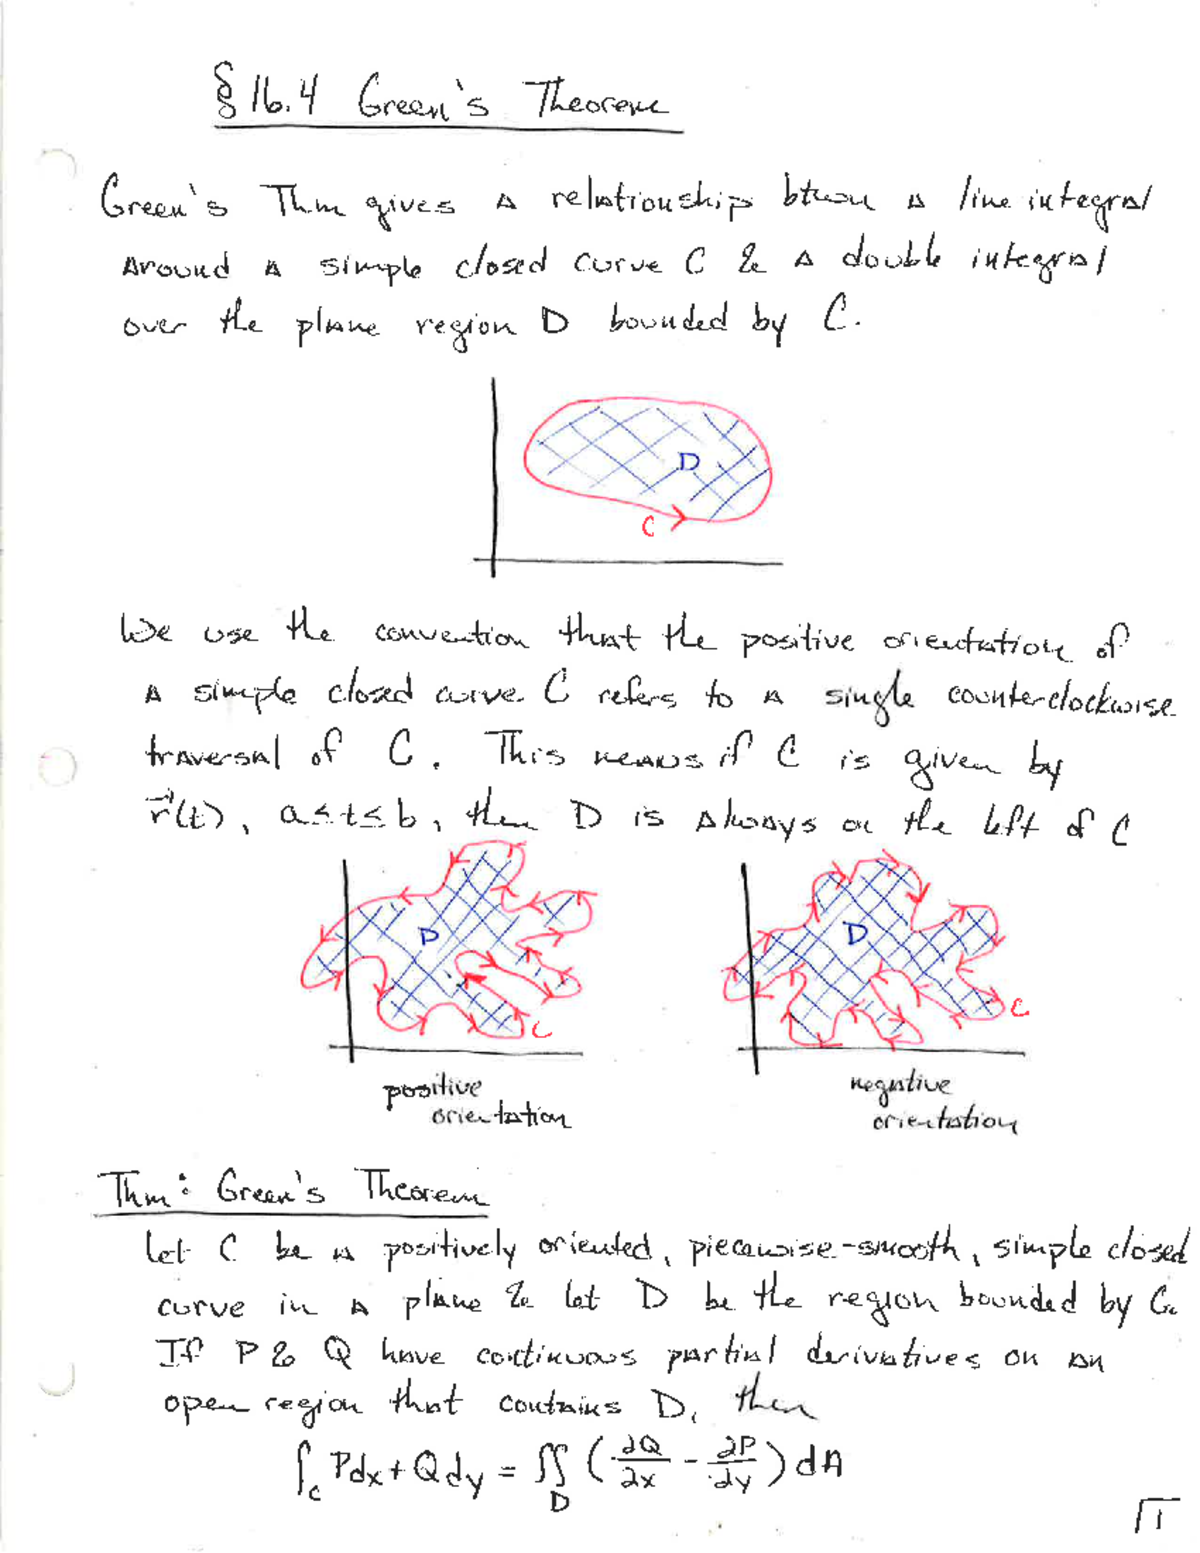 § 16.4 Green's Theorem
Green's Thm gives a relationship btwn a line integral
around a simple closed curve C & a double integral
over the plane region D bounded by C.
D
C
We use the convention that the positive orientation of
a simple closed curve C refers to a single counterclockwise
traversal of C. This means if C is given by
r⃗(t), a≤t≤b, then D is always on the left of C
D
C
D
C
positive
orientation
negative
orientation
Thm: Green's Theorem
Let C be a positively oriented, piecewise-smooth, simple closed
curve in a plane & let D be the region bounded by C.
If P & Q have continuous partial derivatives on an
open region that contains D, then
∫_C Pdx+Qdy = ∬_D (∂Q/∂x - ∂P/∂y) dA
1